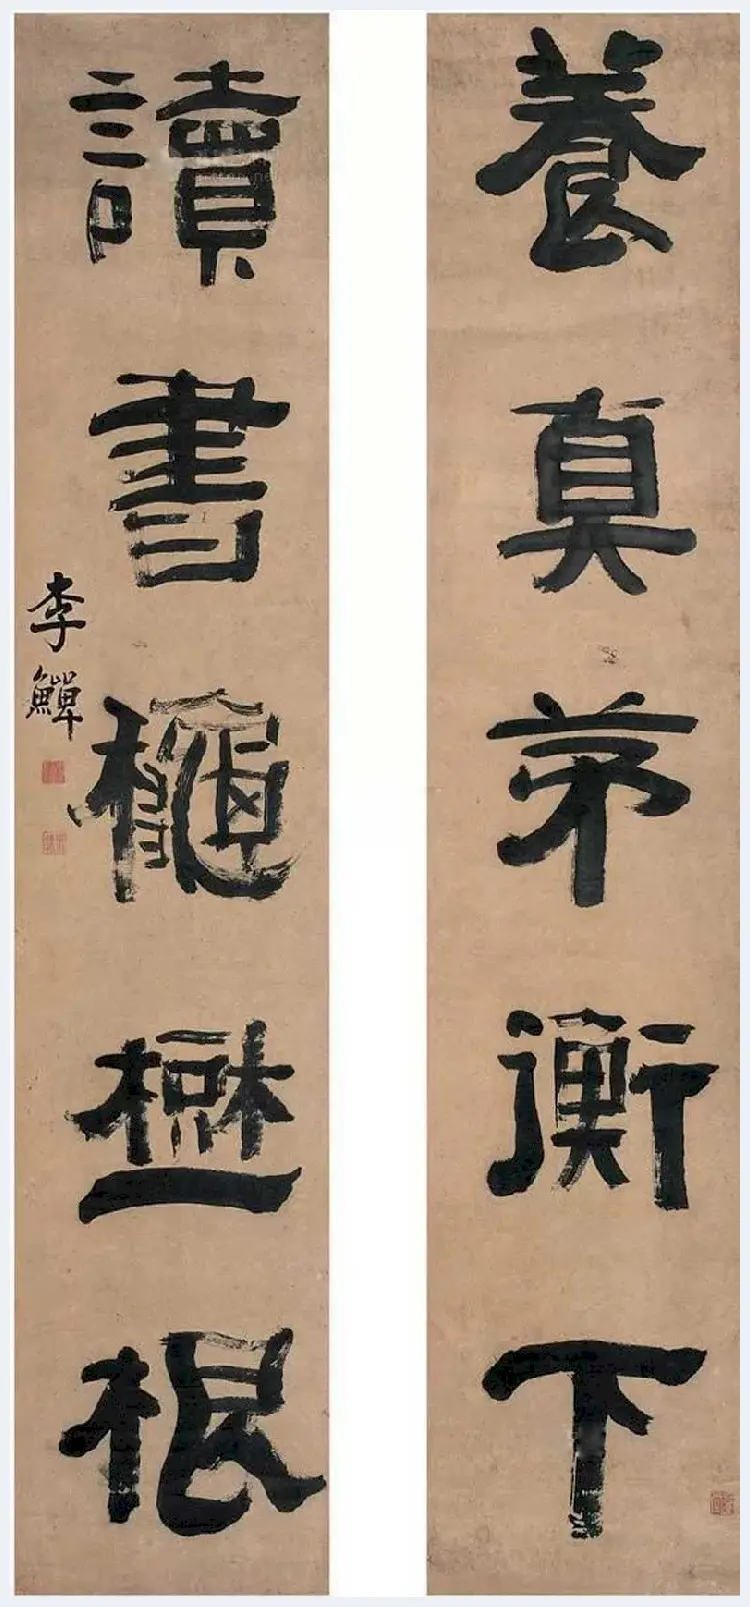 養真茅衡下
讀書龝樹根
李鱓